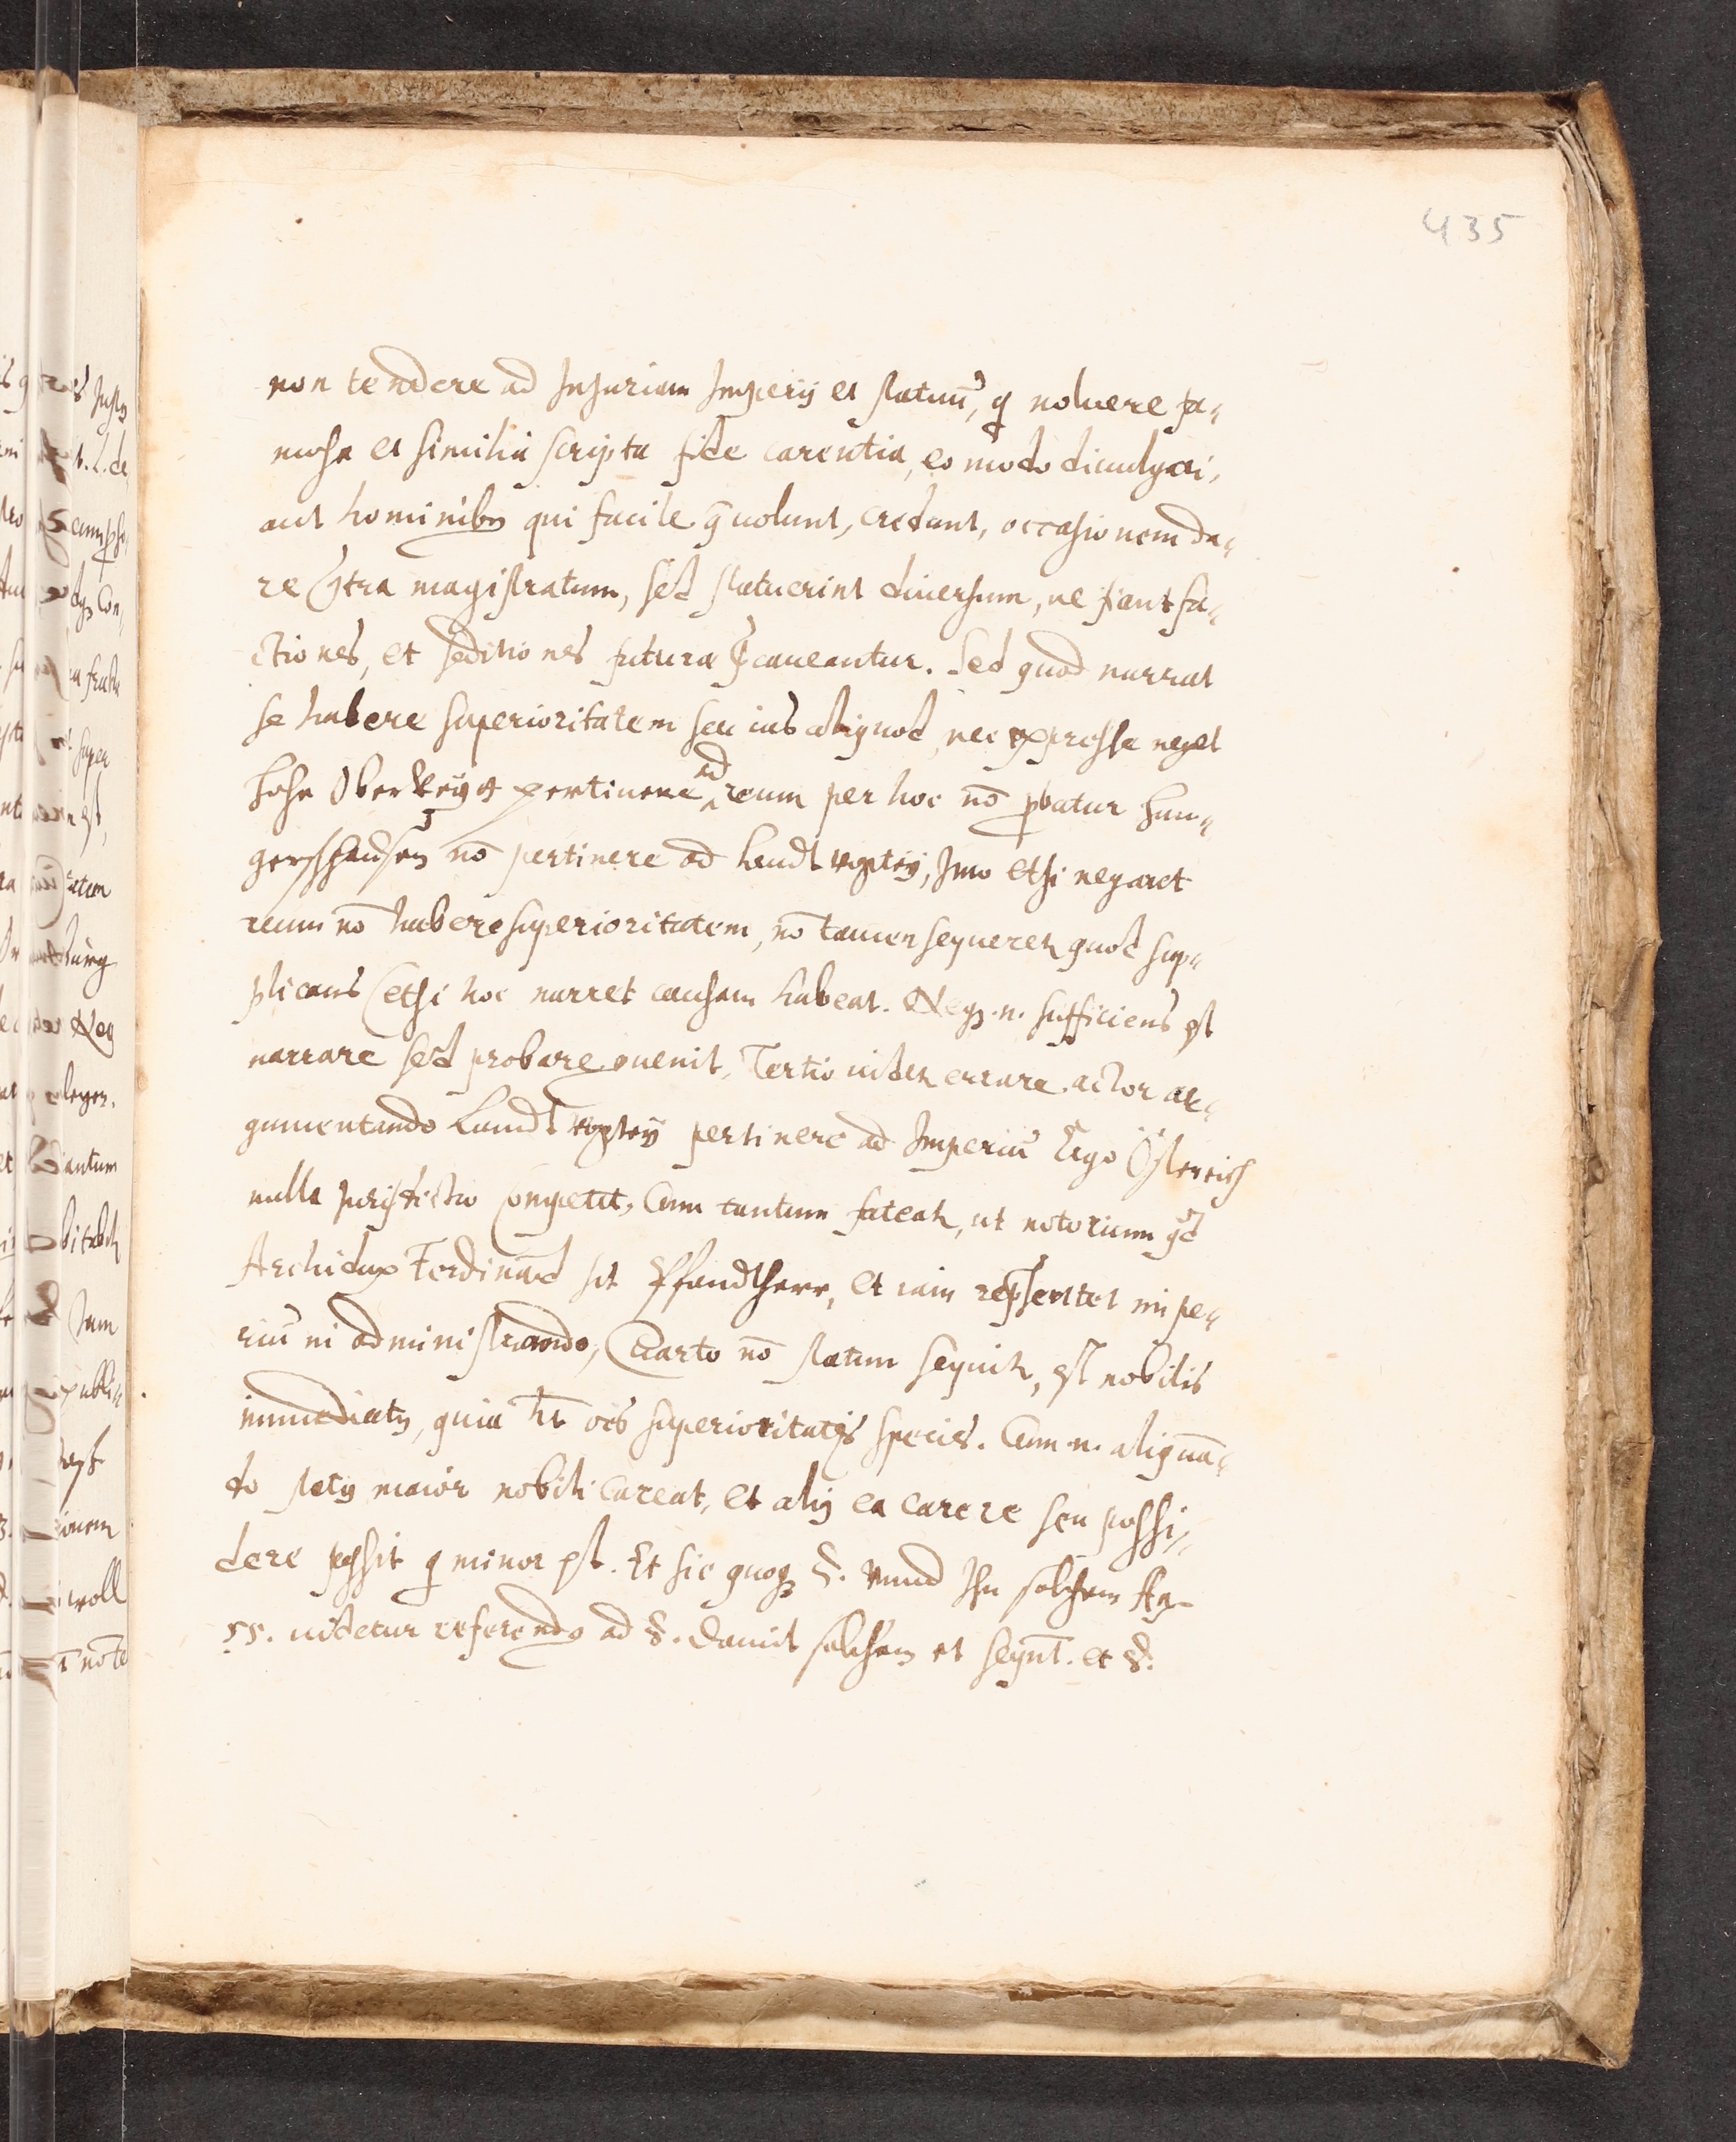 435
non tendere ad Injuriam Imperij et statuū, q noluere fa-
mosa et similia scripta fide carentia, eo modo diuulgari,
aut hominibꝰ qui facile q̄ uolunt, credunt, occasionem da-
re 9tra magistratum, sed statuerint diuersum, ne fiant fa-
ctiones, et seditiones futura p̄caueantur. Sed quod narrat
se habere superioritatem seu ius aliquod, nec expresse neget
hohe Oberkeyt pertinere ad reum per hoc nō ꝓbatur Hun-
gershausen nō pertinere ad Landt vogtey, Imo etsi negaret
reum nō habere superioritatem, nō tamen sequeret~ quod sup-
plicans (etsi hoc narret causam habeat. Neqꝫ .n. sufficiens est
narrare sed probare 9uenit, Tertio uidet~ errare actor ar-
gumentando Landt vogtey pertinere ad Imperiū Ergo Östereich
nulla Jurisdictio Competit, Cum tantum fateat~, ut notorium qd
Archidux Ferdinād sit Pfandtherr, et iam rep̄sentet impe-
riū in administrando, Quarto nō statim sequit~, est nobilis
immediatꝰ, quia ht̄ oēs superioritatis species. Cum .n. aliquā-
do statꝰ maior nobili careat, et alij ea carere seu possi-
dere possit q minor est. Et sic quoqꝫ §. Vnnd Inn solchem Ar-
55. uidetur referendo ad §. Damit solchem et seqnt̄. et §.
is
Jusꝰ
t. l. de
Con-
super
est,
Neq
leger.
Jam
publi-
ionem
woll
note